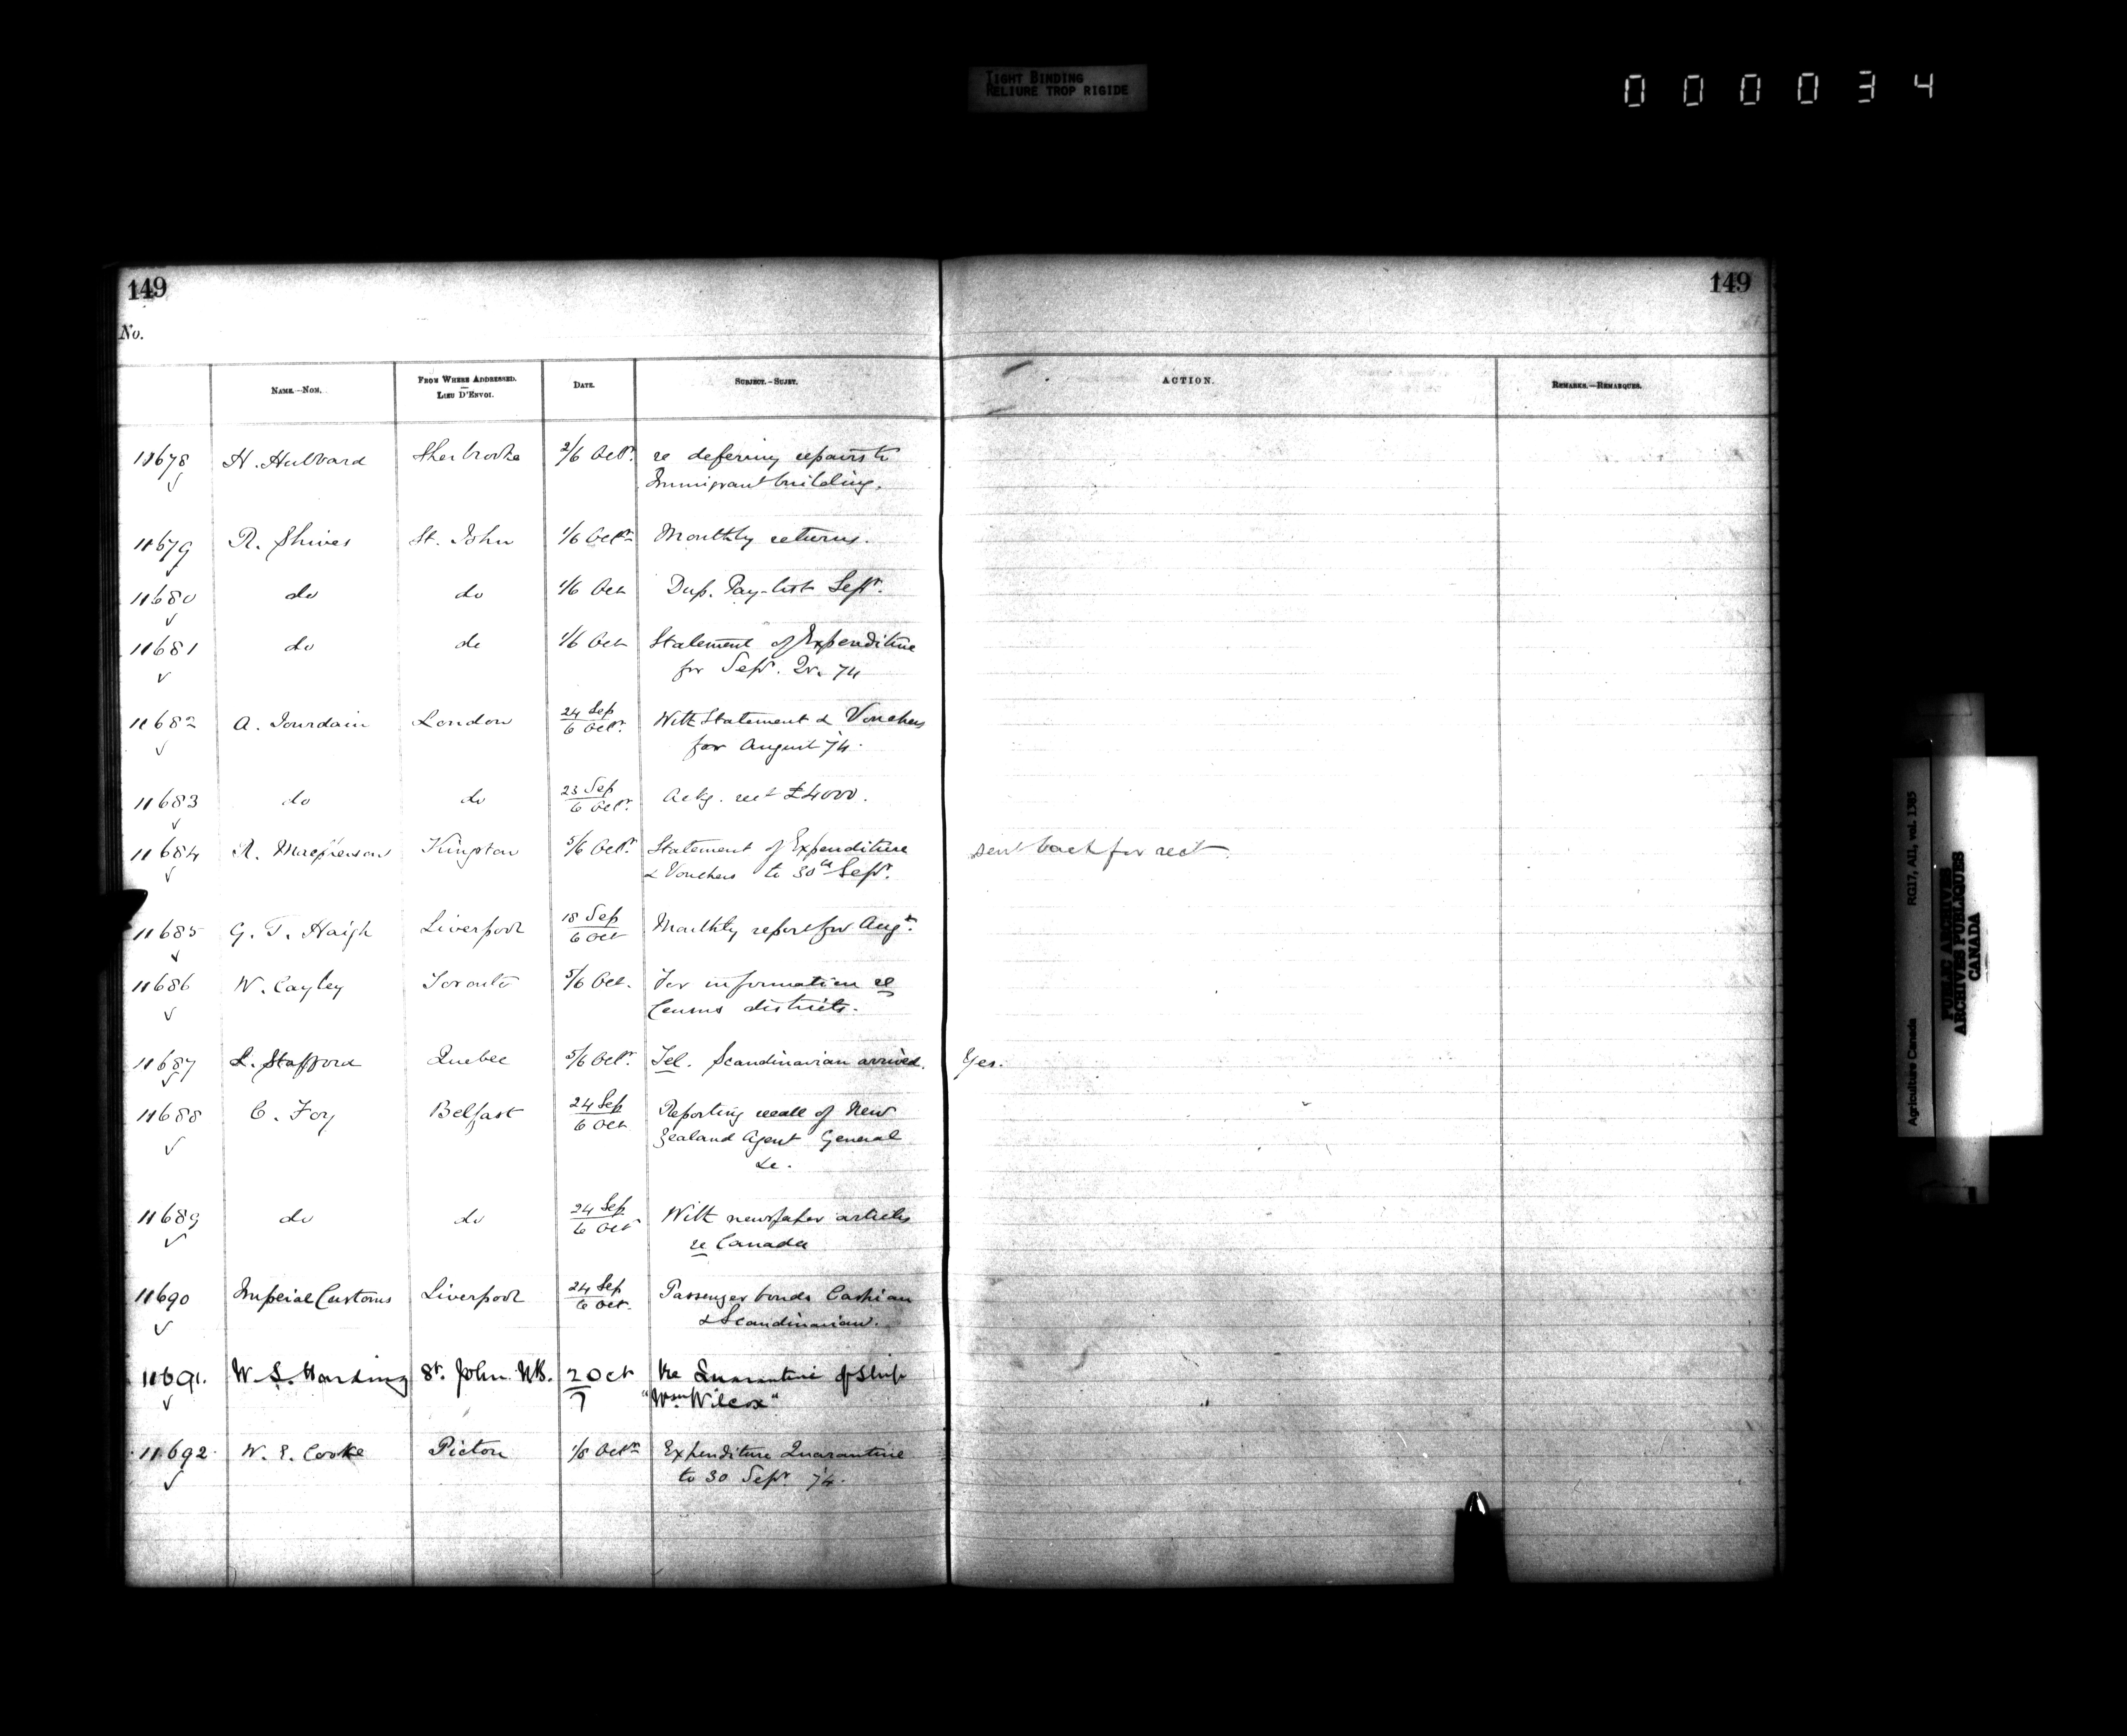 TIGHT BINDING
RELIURE TROP RIGIDE
000034
149 149
No.
NAME.—NOM. FROM WHERE ADDRESSED. — LIEU D'ENVOI. DATE. SUBJECT.—SUJET. ACTION. REMARKS.—REMARQUES.
11678 H. Hubbard Sherbrooke 2/6 Octr. re defering repairs to
Immigrant building.
11679 R. Shives St. John 1/6 Octr Monthly returns.
11680 do do 1/6 Oct Dup. Pay-list Sepr.
11681 do do 1/6 Oct Statement of Expenditure
for Sepr. Qr. 74
11682 A. Jourdain London 24 Sep/6 Octr. With Statement & Vouchers
for August 74.
11683 do do 23 Sep/6 Octr. Ackg. rect £4000.
11684 R. Macpherson Kingston 5/6 Octr. Statement of Expenditure sent back for rect
& Vouchers to 30th Sepr.
11685 G. T. Haigh Liverpool 18 Sep/6 Oct Monthly report for Augt.
11686 W. Cayley Toronto 5/6 Oct. For information re
Census districts.
11687 L. Stafford Quebec 5/6 Octr. Tel. Scandinavian arrived. Yes.
11688 C. Foy Belfast 24 Sep/6 Oct Reporting recall of New
Zealand Agent General
&c.
11689 do do 24 Sep/6 Oct With newspaper articles
re Canada
11690 Imperial Customs Liverpool 24 Sep/6 Oct. Passenger bonds Caspian
& Scandinavian.
11691. W. S. Harding St. John NB. 2 Oct/7 Re Quarantine of Ship
"Wm Wilcox"
11692. W. E. Cooke Pictou 1/8 Octr Expenditure Quarantine
to 30 Sepr. 74.
Agriculture Canada RG17, AII, vol. 1385
PUBLIC ARCHIVES
ARCHIVES PUBLIQUES
CANADA